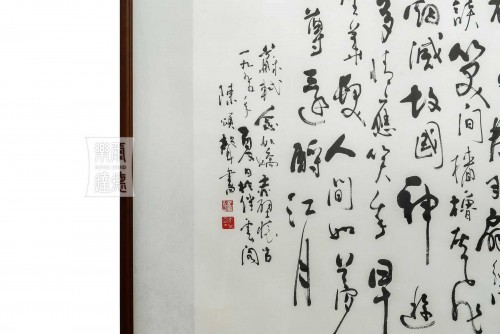 扇
談笑間檣櫓灰飛
烟滅故國神遊
多情應笑我早
生華髮人間如夢
尊還酹江月
蘇軾念奴嬌赤壁懷古
一九九年夏日於雲閣
陳頌聲書